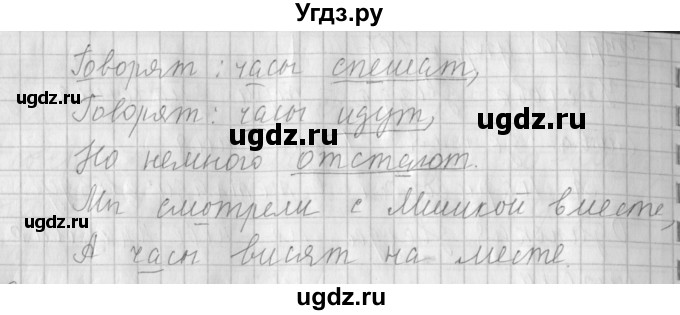 Угдз.ру
Говорят: часы спешат,
Говорят: часы идут,
Но немного отстают.
Мы смотрели с Мишкой вместе,
А часы висят на месте.
ugdz.ru
ugdz.ru
ugdz.ru
ugdz.ru
ugdz.ru
ugdz.ru
ugdz.ru